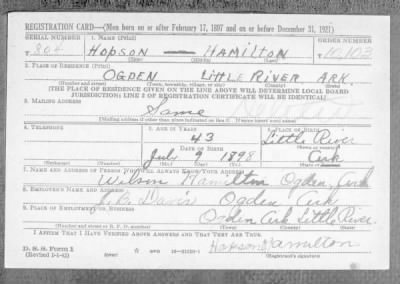 REGISTRATION CARD—(Men born on or after February 17, 1897 and on or before December 31, 1921)
SERIAL NUMBER 1. NAME (Print) ORDER NUMBER
T 804 HOPSON — HAMILTON T 10,103
(First) (Middle) (Last)
2. PLACE OF RESIDENCE (Print)
OGDEN LITTLE RIVER ARK
(Number and street) (Town, township, village, or city) (County) (State)
[THE PLACE OF RESIDENCE GIVEN ON THE LINE ABOVE WILL DETERMINE LOCAL BOARD
JURISDICTION; LINE 2 OF REGISTRATION CERTIFICATE WILL BE IDENTICAL]
3. MAILING ADDRESS
Same
[Mailing address if other than place indicated on line 2. If same insert word same]
4. TELEPHONE 5. AGE IN YEARS 6. PLACE OF BIRTH
43 Little River
DATE OF BIRTH (Town or county)
July 9 1898 Ark
(Exchange) (Number) (Mo.) (Day) (Yr.) (State or country)
7. NAME AND ADDRESS OF PERSON WHO WILL ALWAYS KNOW YOUR ADDRESS
Wilson Hamilton Ogden, Ark
8. EMPLOYER'S NAME AND ADDRESS
B. Davis Ogden Ark
9. PLACE OF EMPLOYMENT OR BUSINESS
Ogden Ark Little River
(Number and street or R. F. D. number) (Town) (County) (State)
I AFFIRM THAT I HAVE VERIFIED ABOVE ANSWERS AND THAT THEY ARE TRUE.
D. S. S. Form 1
(Revised 1-1-42) Hopson Hamilton
(Registrant's signature)